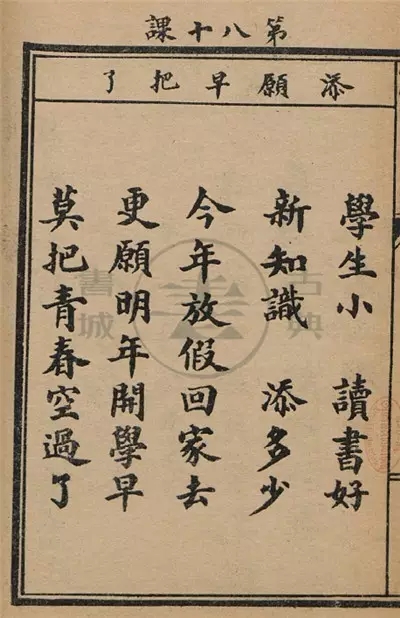 第八十課
添願早把了
學生小　讀書好
新知識　添多少
今年放假回家去
更願明年開學早
莫把青春空過了
古典書城